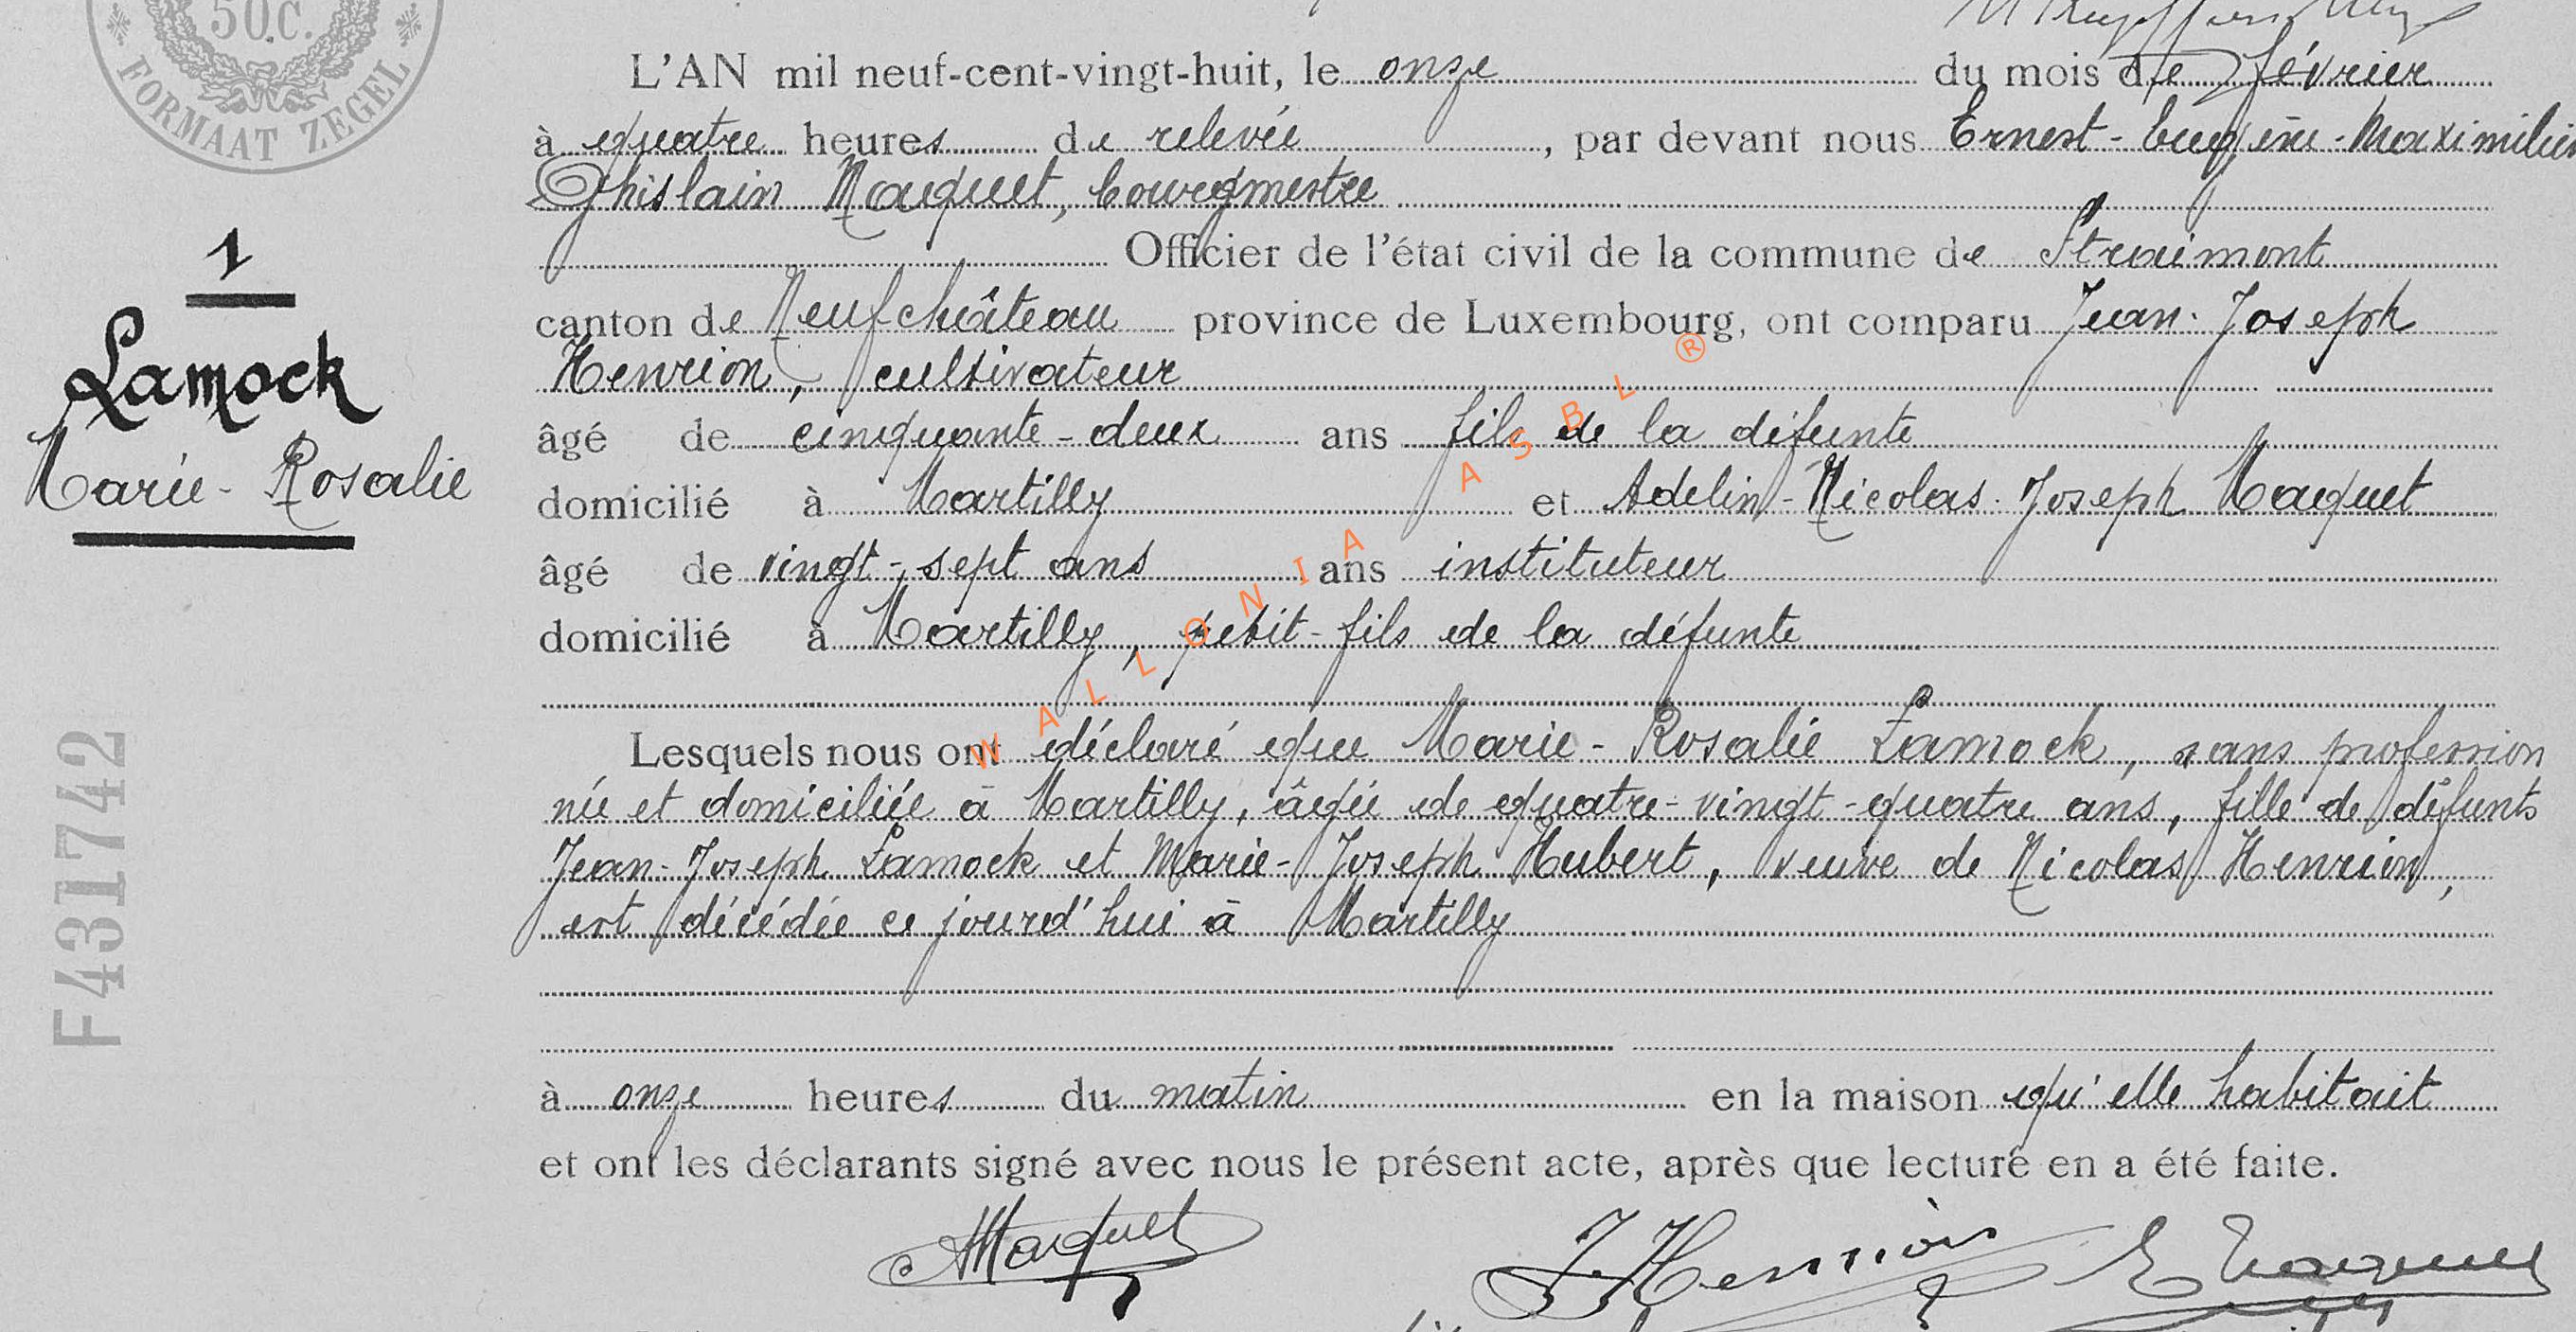 50C.
FORMAAT ZEGEL
L'AN mil neuf-cent-vingt-huit, le onze du mois de février
à quatre heures de relevée, par devant nous Ernest-Eugène-Maximilien
Ghislain Maquet, bourgmestre
Officier de l'état civil de la commune de Straimont
canton de Neufchâteau province de Luxembourg, ont comparu Jean-Joseph
Henrion, cultivateur
âgé de cinquante-deux ans fils de la défunte
domicilié à Martilly et Adelin-Nicolas-Joseph Maquet
âgé de vingt-sept ans ans instituteur
domicilié à Martilly, petit-fils de la défunte
1
Lamock
Marie-Rosalie
F431742
Lesquels nous ont déclaré que Marie-Rosalie Lamock, sans profession
née et domiciliée à Martilly, âgée de quatre-vingt-quatre ans, fille de défunts
Jean-Joseph Lamock et Marie-Joseph Hubert, veuve de Nicolas Henrion,
est décédée ce jourd'hui à Martilly
à onze heures du matin en la maison qu'elle habitait
et ont les déclarants signé avec nous le présent acte, après que lecture en a été faite.
AMaquet
J Henrion
E Maquet
WALLONIA ASBL ®